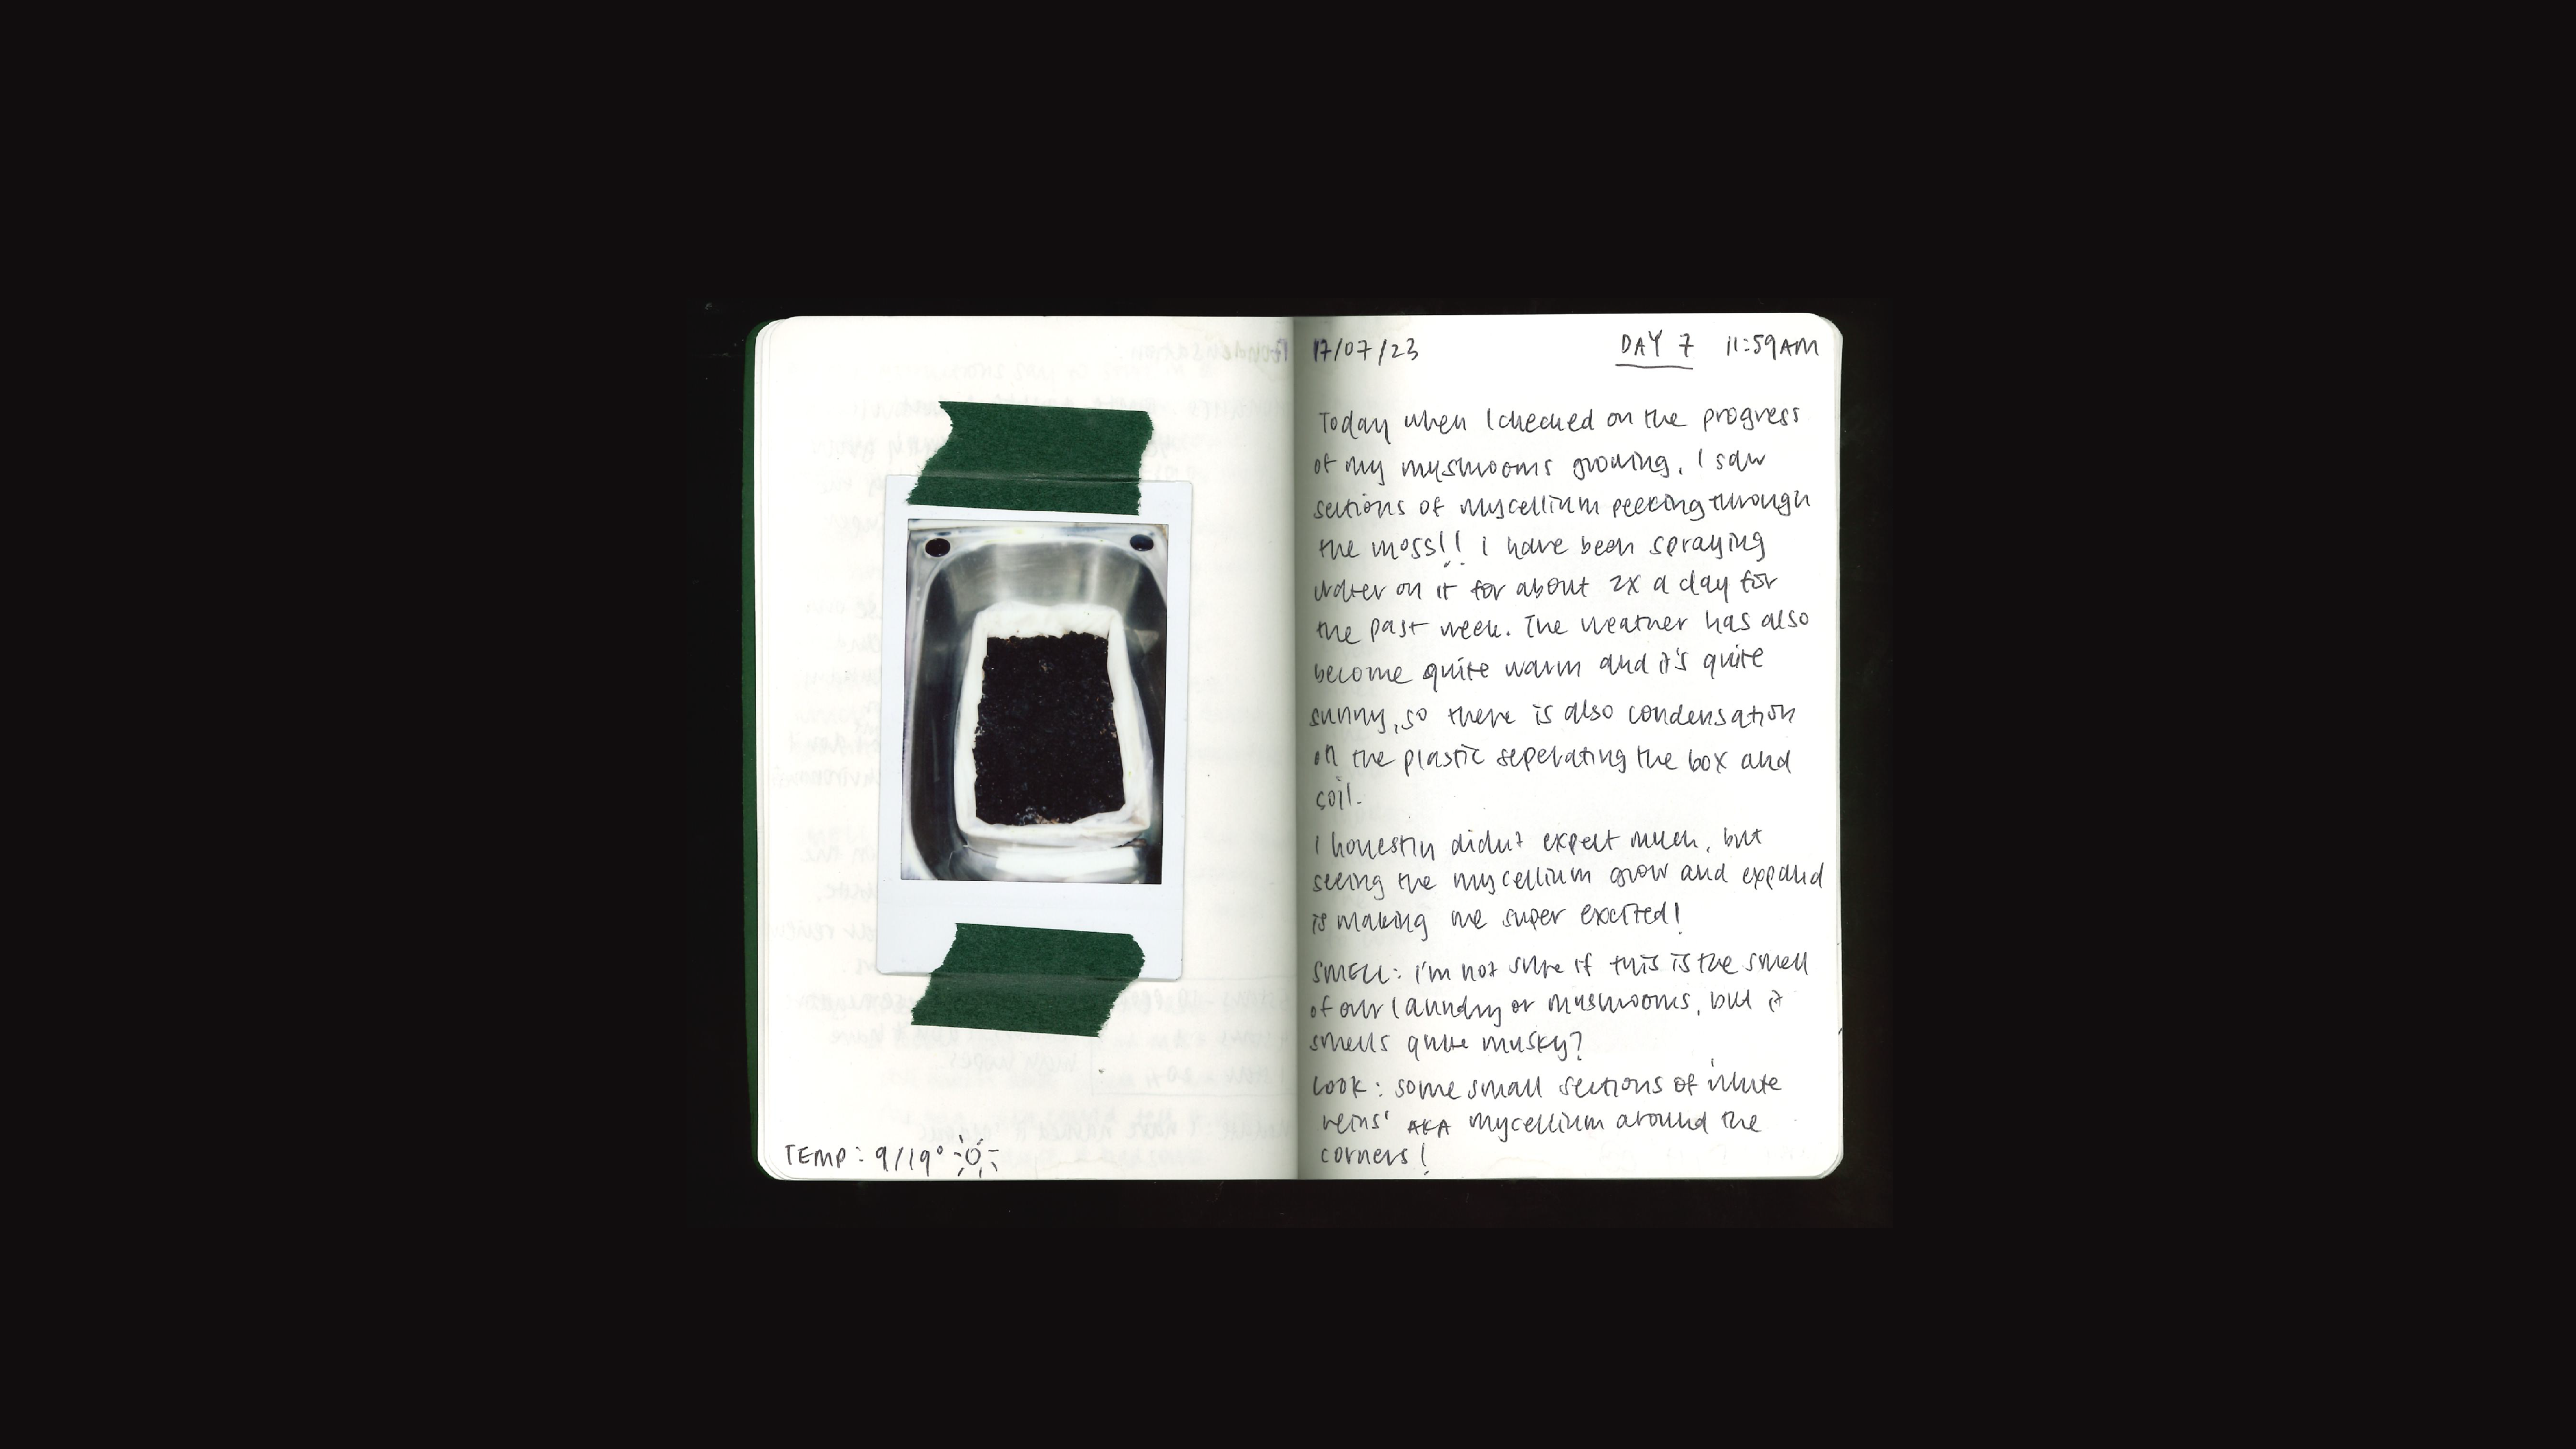 TEMP: 9/19°
17/07/23 DAY 7 11:59AM
Today when I checked on the progress
of my mushrooms growing, I saw
sections of mycellium peeking through
the moss!! i have been spraying
water on it for about 2x a day for
the past week. The weather has also
become quite warm and it's quite
sunny, so there is also condensation
on the plastic seperating the box and
soil.
I honestly didn't expect much, but
seeing the mycellium grow and expand
is making me super excited!
SMELL: i'm not sure if this is the smell
of our laundry or mushrooms, but it
smells quite musky?
LOOK: some small sections of 'white
veins' AKA mycellium around the
corners!